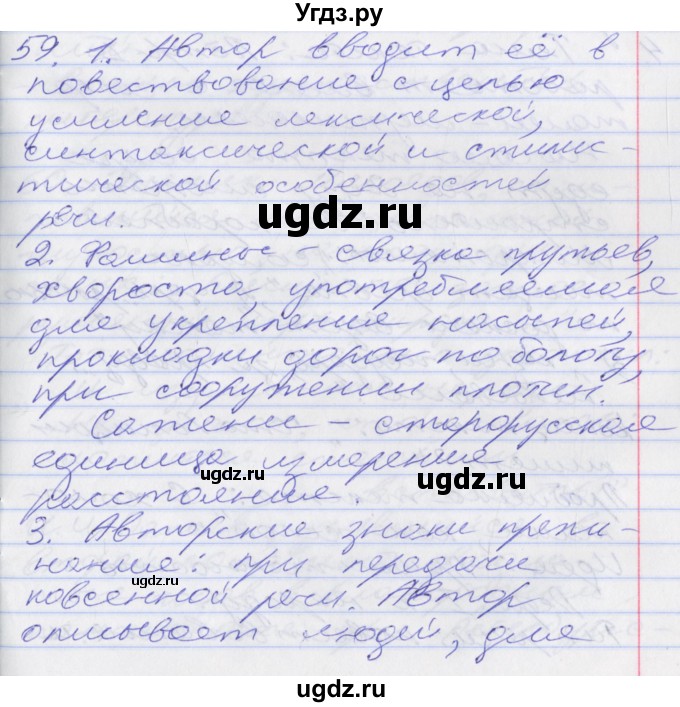 Угдз.ру
59. 1. Автор вводит её в
повествование с целью
усиление лексической,
синтаксической и стилис-
тической особенностей
речи.
ugdz.ru
2. Фашины - связка прутьев,
хвороста, употребляемая
для укрепления насыпей,
прокладки дорог по болоту,
при сооружении плотин.
ugdz.ru
Сажени - старорусская
единица измерение
ugdz.ru
ugdz.ru
расстояния.
3. Авторские знаки препи-
нание: при передачи
ugdz.ru
ковсенной речи. Автор
описывает людей, для
ugdz.ru